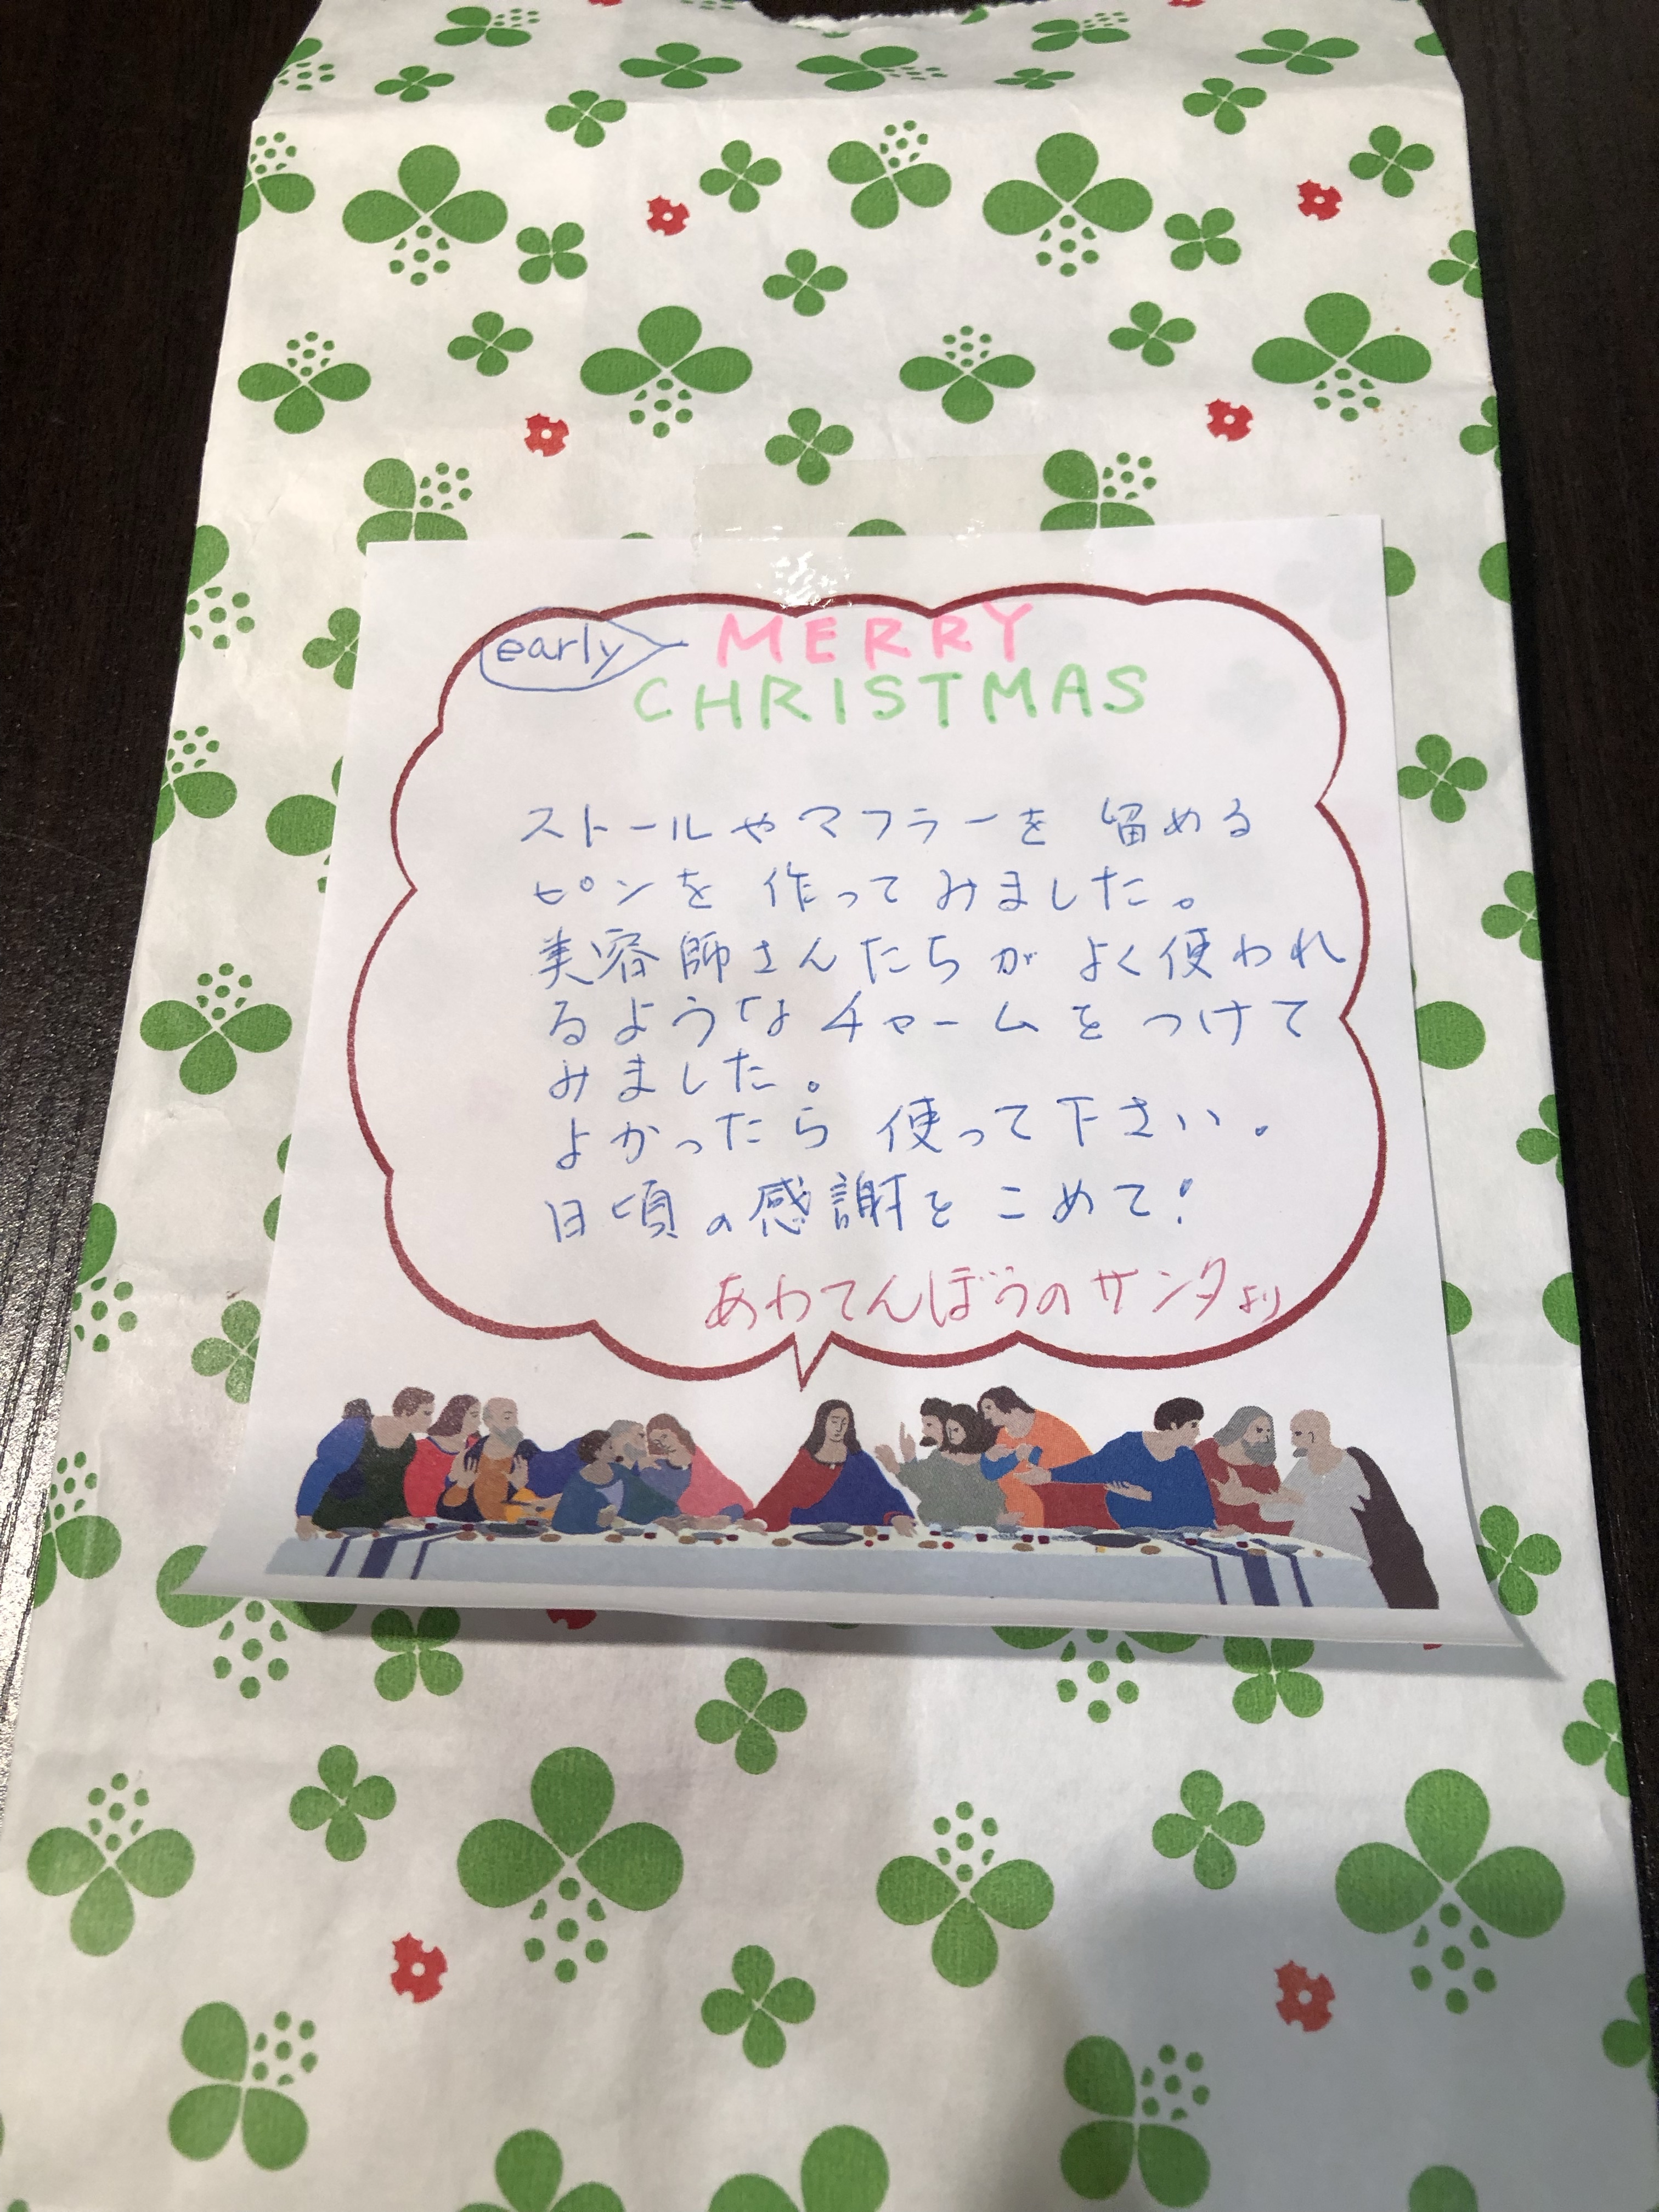 early MERRY
CHRISTMAS
ストールやマフラーを 留める
ピンを 作ってみました。
美容師さんたちが よく使われ
るようなチャームを つけて
みました。
よかったら 使って下さい。
日頃の感謝を こめて!
あわてんぼうのサンタより